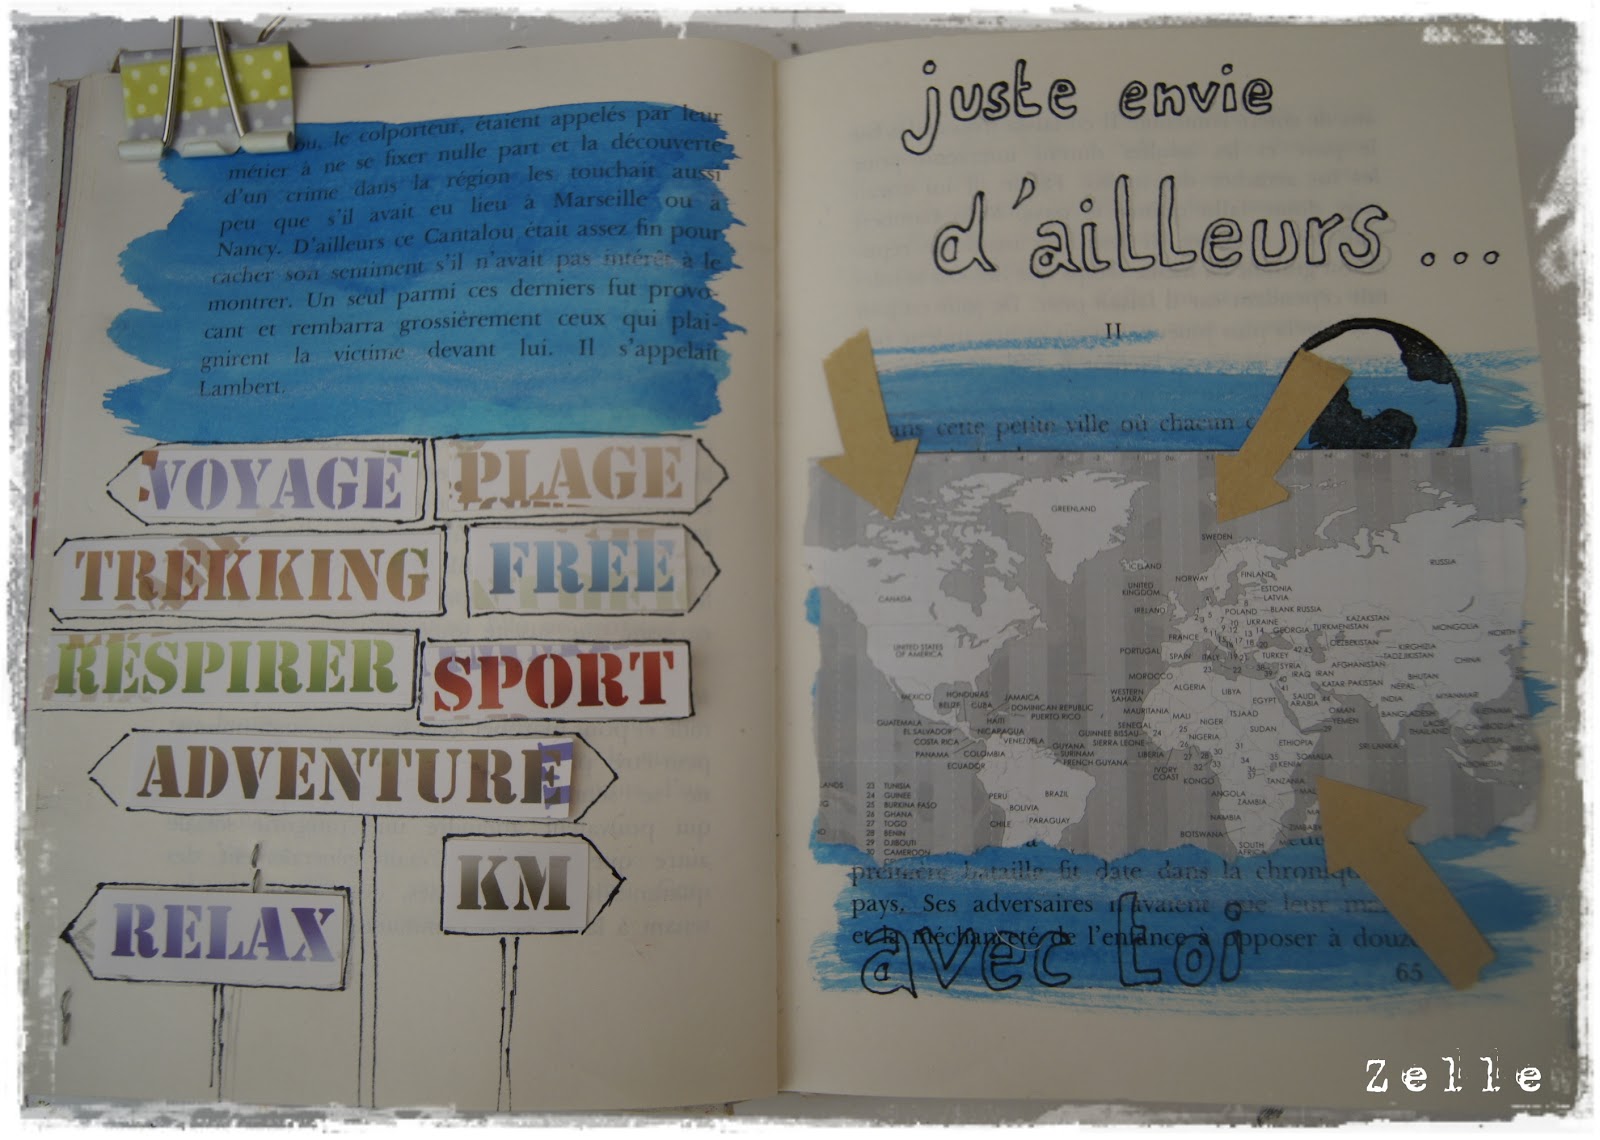 ou, le colporteur, étaient appelés par leur
métier à ne se fixer nulle part et la découverte
d'un crime dans la région les touchait aussi
peu que s'il avait eu lieu à Marseille ou à
Nancy. D'ailleurs ce Cantalou était assez fin pour
cacher son sentiment s'il n'avait pas intérêt à le
montrer. Un seul parmi ces derniers fut provo-
cant et rembarra grossièrement ceux qui plai-
gnirent la victime devant lui. Il s'appelait
Lambert.
VOYAGE
PLAGE
TREKKING
FREE
RESPIRER
SPORT
ADVENTURE
KM
RELAX
juste envie
d'ailleurs ...
II
ans cette petite ville où chacun
GREENLAND
SWEDEN
ICELAND
NORWAY
FINLAND
RUSSIA
UNITED
KINGDOM
ESTONIA
LATVIA
CANADA
IRELAND
POLAND
BLANK RUSSIA
UKRAINE
KAZAKSTAN
FRANCE
GEORGIA
TURKMENISTAN
MONGOLIA
NORTH
UNITED STATES
OF AMERICA
PORTUGAL
SPAIN
ITALY
TURKEY
UZBEKISTAN
KIRGHIZIA
TADZJIKISTAN
CHINA
SYRIA
AFGHANISTAN
MOROCCO
IRAQ
IRAN
BHUTAN
ALGERIA
LIBYA
EGYPT
SAUDI
ARABIA
QATAR
PAKISTAN
NEPAL
MYANMAR
MEXICO
HONDURAS
BELIZE
CUBA
JAMAICA
DOMINICAN REPUBLIC
PUERTO RICO
HAITI
WESTERN
SAHARA
MAURITANIA
MALI
NIGER
TSJAAD
SUDAN
OMAN
YEMEN
INDIA
BANGLADESH
LAOS
THAILAND
GUATEMALA
EL SALVADOR
NICARAGUA
COSTA RICA
VENEZUELA
PANAMA
COLOMBIA
GUYANA
SURINAM
FRENCH GUYANA
ECUADOR
SENEGAL
GUINNEE BISSAU
SIERRA LEONE
LIBERIA
IVORY
COAST
NIGERIA
ETHIOPIA
SOMALIA
SRI LANKA
KENIA
KONGO
TANZANIA
PERU
BRAZIL
BOLIVIA
CHILE
PARAGUAY
ANGOLA
ZAMBIA
NAMBIA
BOTSWANA
SOUTH
23 TUNISIA
24 GUINEE
25 BURKINA FASO
26 GHANA
27 TOGO
28 BENIN
29 DJIBOUTI
30 CAMEROON
première bataille fit date dans la chroniq
pays. Ses adversaires n'avaient que leur
et la méchanceté de l'enfance à opposer à douze
avec toi
65
Zelle